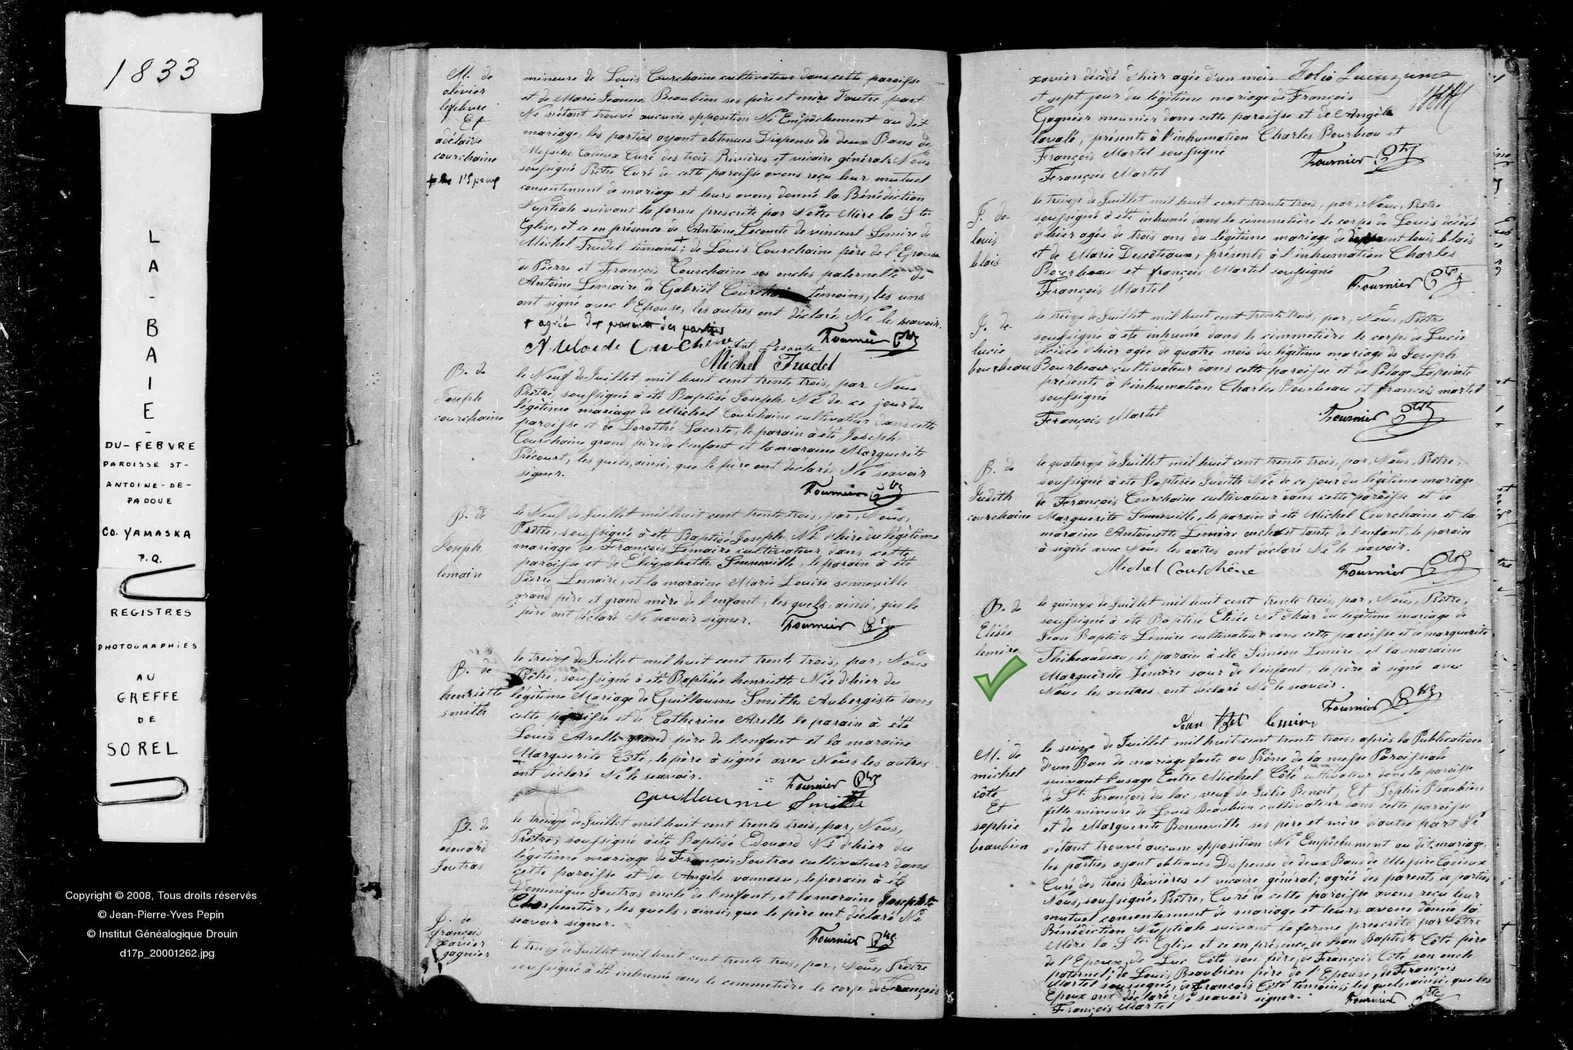 1833
LA-BAIE-
DU-FEBVRE
PAROISSE ST-
ANTOINE-DE-
PADOUE
CO. YAMASKA
P.Q.
REGISTRES
PHOTOGRAPHIÉS
AU
GREFFE
DE
SOREL
Copyright © 2008, Tous droits réservés
© Jean-Pierre-Yves Pepin
© Institut Généalogique Drouin
d17p_20001262.jpg
M. de
olivier
lefebvre
Et
adélaïde
courchaine
mineure de Louis Courchaine cultivateur dans cette paroisse
et de Marie Jeanne Beaubien ses père et mère d'autre part
Ne s'étant trouvé aucune opposition Ni Empêchement au dit
mariage, les parties ayant obtenues Dispense de deux Bans de
Messire Cadieux Curé des trois Rivières et vicaire général, Nous
soussigné Prêtre Curé de cette paroisse avons reçu leur mutuel
consentement de mariage et leurs avons donné la Bénédiction
Nuptiale suivant la forme prescrite par Nôtre Mère la Ste
Eglise, et ce en présence de Antoine Lecomte de vincent Lemire de
Michel Trudel de Louis Courchaine père de l'Epouse
de Pierre et François Courchaine ses oncles paternels de
Antoine Lemaire de Gabriel témoins, les uns
ont signé avec l'Epouse, les autres ont déclaré Ne le sçavoir.
Fournier Ptre
Michel Trudel
B. de
Joseph
courchaine
le Neuf de Juillet mil huit cent trente trois, par Nous
Prêtre, soussigné a été Baptisé Joseph Né de ce jour du
légitime mariage de Michel Courchaine cultivateur dans cette
paroisse et de Dorothé Lacerte, le parain a été Joseph
Courchaine grand père de l'enfant et la maraine Marguerite
Précourt, les quels, ainsi, que le père ont déclaré Ne sçavoir
signer.
Fournier Ptre
B. de
Joseph
lemaire
le Neuf de Juillet mil huit cent trente trois, par, Nous,
Prêtre, soussigné a été Baptisé Joseph Né d'hier du légitime
mariage de François Lemaire cultivateur dans cette
paroisse et de Elizabethe Senneville, le parain a été
Pierre Lemaire, et la maraine Marie Louise senneville
grand père et grand mère de l'enfant, les quels, ainsi, que le
père ont déclaré Ne sçavoir signer.
Fournier Ptre
B. de
henriette
smith
le treize de Juillet mil huit cent trente trois, par, Nous
Prêtre, soussigné a été Baptisée henriette Née d'hier du
légitime Mariage de Guillaume Smith Aubergiste dans
cette paroisse et de Catherine Arelle le parain a été
Louis Arelle grand père de l'enfant et la maraine
Marguerite Coté, le père a signé avec Nous les autres
ont déclaré Ne le sçavoir.
Fournier Ptre
Guillaume Smith
B. de
Joutras
le treize de Juillet mil huit cent trente trois, par, Nous,
Prêtre, soussigné a été Baptisé Edouard Né d'hier du
légitime mariage de François Joutras cultivateur dans
cette paroisse et de Angèle vanasse, le parain a été
Dominique Joutras oncle de l'enfant, et la maraine Josephte
Charpentier, les quels, ainsi, que le père ont déclaré Ne
sçavoir signer.
Fournier Ptre
françois
xavier
gagnier
le treize de Juillet mil huit cent trente trois, par, Nous, Prêtre
soussigné a été inhumé dans le cimmetière le corps de François
xavier décédé d'hier agé d'un mois
et sept jour du légitime mariage de François
Gagnier meunier dans cette paroisse et de Angèle
lavalé, présents à l'inhumation Charles Bourbeau et
François Martel soussigné
Fournier Ptre
François Martel
louis
blais
le treize de Juillet mil huit cent trente trois, par, Nous, Prêtre
soussigné a été inhumé dans le cimmetière le corps de Louis décédé
d'hier agé de trois ans du légitime mariage de louis blais
et de Marie Descoteaux, présents à l'inhumation Charles
Bourbeau et françois Martel soussigné
Fournier Ptre
François Martel
lucie
bourbeau
le treize de Juillet mil huit cent trente trois, par, Nous, Prêtre
soussigné a été inhumé dans le cimmetière le corps de Lucie
décédée d'hier agée de quatre mois du légitime mariage de Joseph
Bourbeau cultivateur dans cette paroisse et de
présents à l'inhumation Charles Bourbeau et françois martel
soussigné
François Martel
Fournier Ptre
B. de
Judith
courchaine
le quatorze de Juillet mil huit cent trente trois, par, Nous, Prêtre,
soussigné a été Baptisée Judith Née de ce jour du légitime mariage
de François Courchaine cultivateur dans cette paroisse et de
Marguerite Senneville, le parain a été Michel Courchaine et la
maraine Antoinette Lemire tante de l'enfant, le parain
a signé avec Nous les autres ont déclaré Ne le sçavoir.
Michel Courchêne
Fournier Ptre
B. de
Elisée
lemire
le quinze de Juillet mil huit cent trente trois, par, Nous, Prêtre,
soussigné a été Baptisé Elisée Né d'hier du légitime mariage de
Jean Baptiste Lemire cultivateur dans cette paroisse et de marguerite
Thibeaudeau, le parain a été Siméon Lemire, et la maraine
Marguerite Lemire sœur de l'enfant, le père a signé avec
Nous les autres ont déclaré Ne le sçavoir.
Fournier Ptre
Jean Bte lemire
M. de
michel
côté
Et
sophie
beaubien
le seize de Juillet mil huit cent trente trois, après la Publication
d'un Ban de mariage faite au Prône de la messe Paroissiale
suivant l'usage Entre Michel Côté cultivateur dans la paroisse
de St. François du lac, veuf de Julie Benoit, Et Sophie Beaubien
fille mineure de Louis Beaubien cultivateur dans cette paroisse
et de Marguerite Bonneville ses père et mère d'autre part Ne
s'étant trouvé aucune opposition Ni Empêchement au dit mariage,
les parties ayant obtenues Dispense de deux Bans de Messire Cadieux
Curé des trois Rivières et vicaire général, agrée des parents des parties
Nous, soussigné, Prêtre, Curé de cette paroisse avons reçu leur
mutuel consentement de mariage et leurs avons donné la
Bénédiction Nuptiale suivant la forme prescrite par Nôtre
Mère la Ste Eglise et ce en présence, de Jean Baptiste Côté père
de l'Epoux, de Luc Côté son frère, de François Côté son oncle
paternel, de Louis Beaubien père de l'Epouse, de François
Martel soussigné, de François Côté témoins, les quels, ainsi, que les
Epoux ont déclaré Ne sçavoir signer.
Fournier Ptre
François Martel